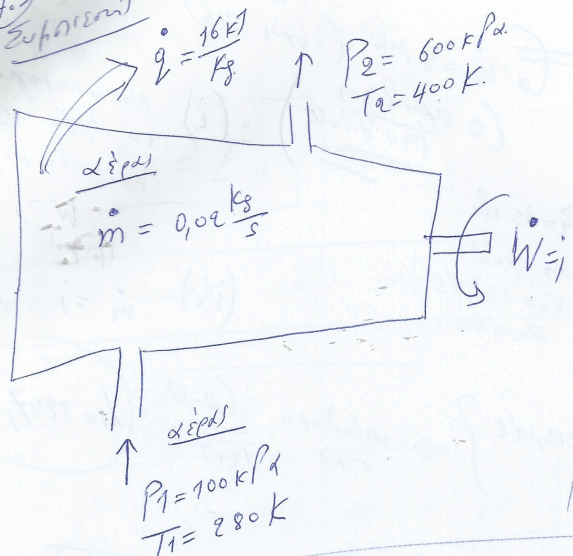 Συμπιεστής
q̇ = 16kJ/kg
P2 = 600kPa
T2 = 400K.
αέρας
ṁ = 0,02 kg/s
Ẇ=;
αέρας
P1 = 100kPa
T1 = 280K